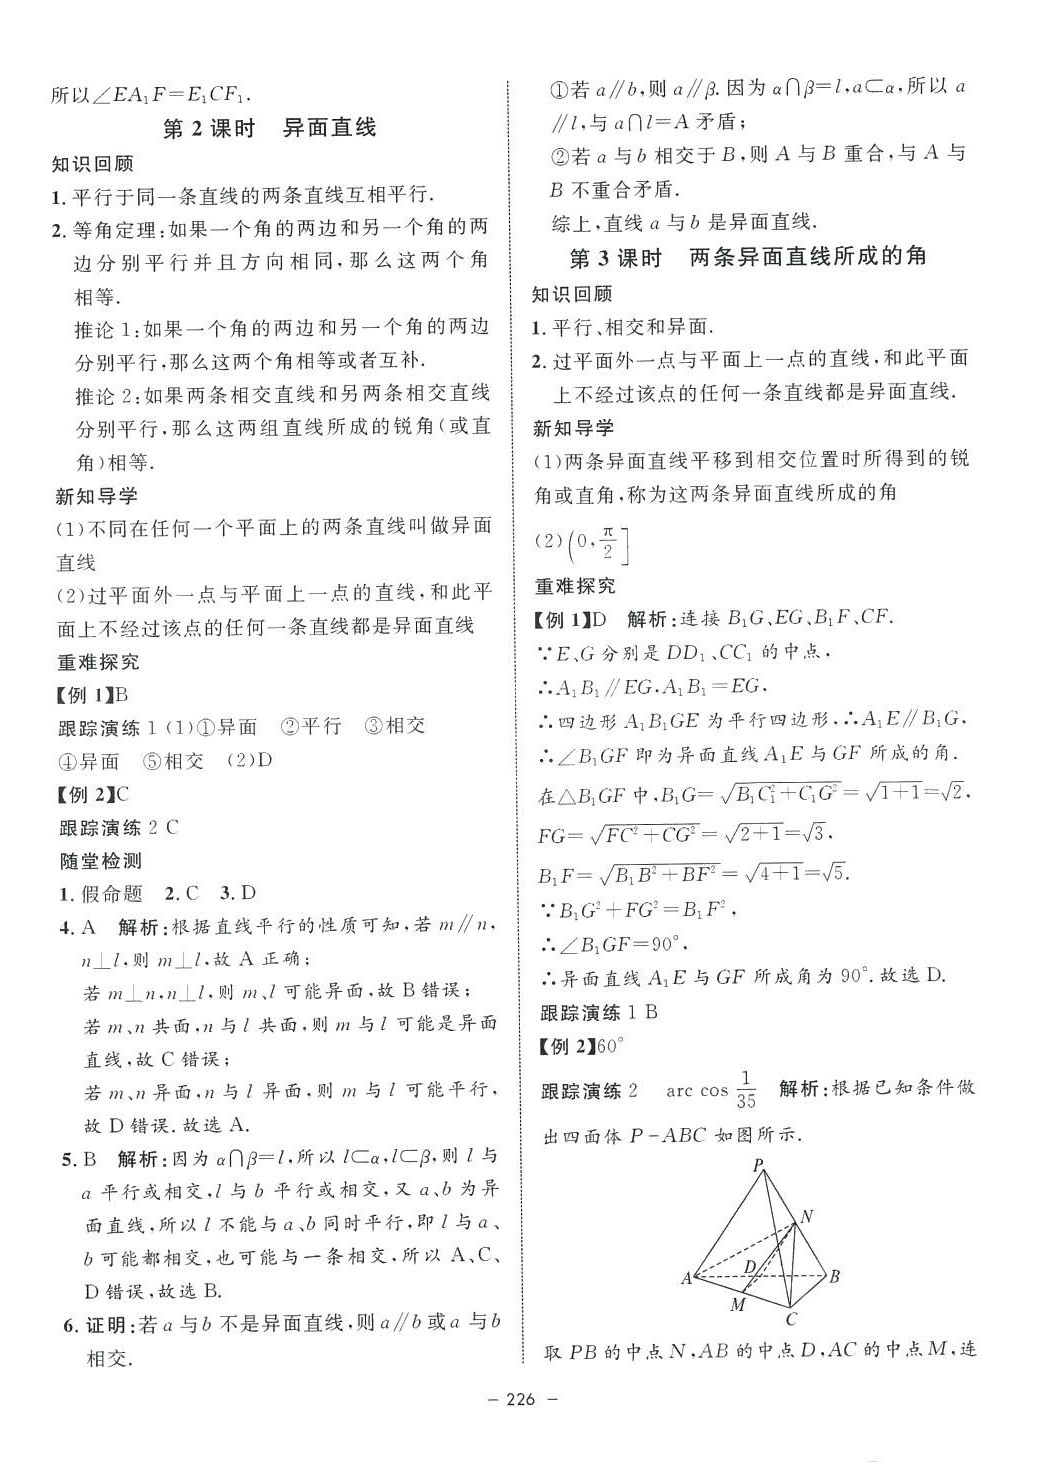 所以∠EA₁F=E₁CF₁.
第2课时　异面直线
知识回顾
1. 平行于同一条直线的两条直线互相平行.
2. 等角定理:如果一个角的两边和另一个角的两
边分别平行并且方向相同,那么这两个角
相等.
推论1:如果一个角的两边和另一个角的两边
分别平行,那么这两个角相等或者互补.
推论2:如果两条相交直线和另两条相交直线
分别平行,那么这两组直线所成的锐角(或直
角)相等.
新知导学
(1)不同在任何一个平面上的两条直线叫做异面
直线
(2)过平面外一点与平面上一点的直线,和此平
面上不经过该点的任何一条直线都是异面直线
重难探究
【例1】B
跟踪演练1 (1)①异面　②平行　③相交
④异面　⑤相交　(2)D
【例2】C
跟踪演练2 C
随堂检测
1. 假命题　2. C　3. D
4. A　解析:根据直线平行的性质可知,若m∥n,
n⊥l,则m⊥l,故A正确;
若m⊥n,n⊥l,则m、l可能异面,故B错误;
若m、n共面,n与l共面,则m与l可能是异面
直线,故C错误;
若m、n异面,n与l异面,则m与l可能平行,
故D错误.故选A.
5. B　解析:因为α∩β=l,所以l⊂α,l⊂β,则l与
a平行或相交,l与b平行或相交,又a、b为异
面直线,所以l不能与a、b同时平行,即l与a、
b可能都相交,也可能与一条相交,所以A、C、
D错误,故选B.
6. 证明:若a与b不是异面直线,则a∥b或a与b
相交.
①若a∥b,则a∥β.因为α∩β=l,a⊂α,所以a
∥l,与a∩l=A矛盾;
②若a与b相交于B,则A与B重合,与A与
B不重合矛盾.
综上,直线a与b是异面直线.
第3课时　两条异面直线所成的角
知识回顾
1. 平行、相交和异面.
2. 过平面外一点与平面上一点的直线,和此平面
上不经过该点的任何一条直线都是异面直线.
新知导学
(1)两条异面直线平移到相交位置时所得到的锐
角或直角,称为这两条异面直线所成的角
(2)(0,π/2]
重难探究
【例1】D　解析:连接B₁G、EG、B₁F、CF.
∵E、G分别是DD₁、CC₁的中点,
∴A₁B₁∥EG,A₁B₁=EG,
∴四边形A₁B₁GE为平行四边形,∴A₁E∥B₁G,
∴∠B₁GF即为异面直线A₁E与GF所成的角.
在△B₁GF中,B₁G=√(B₁C₁²+C₁G²)=√(1+1)=√2,
FG=√(FC²+CG²)=√(2+1)=√3,
B₁F=√(B₁B²+BF²)=√(4+1)=√5.
∵B₁G²+FG²=B₁F²,
∴∠B₁GF=90°,
∴异面直线A₁E与GF所成角为90°.故选D.
跟踪演练1 B
【例2】60°
跟踪演练2　arc cos 1/35　解析:根据已知条件做
出四面体P-ABC如图所示.
P
N
A
D
B
M
C
取PB的中点N,AB的中点D,AC的中点M,连
- 226 -